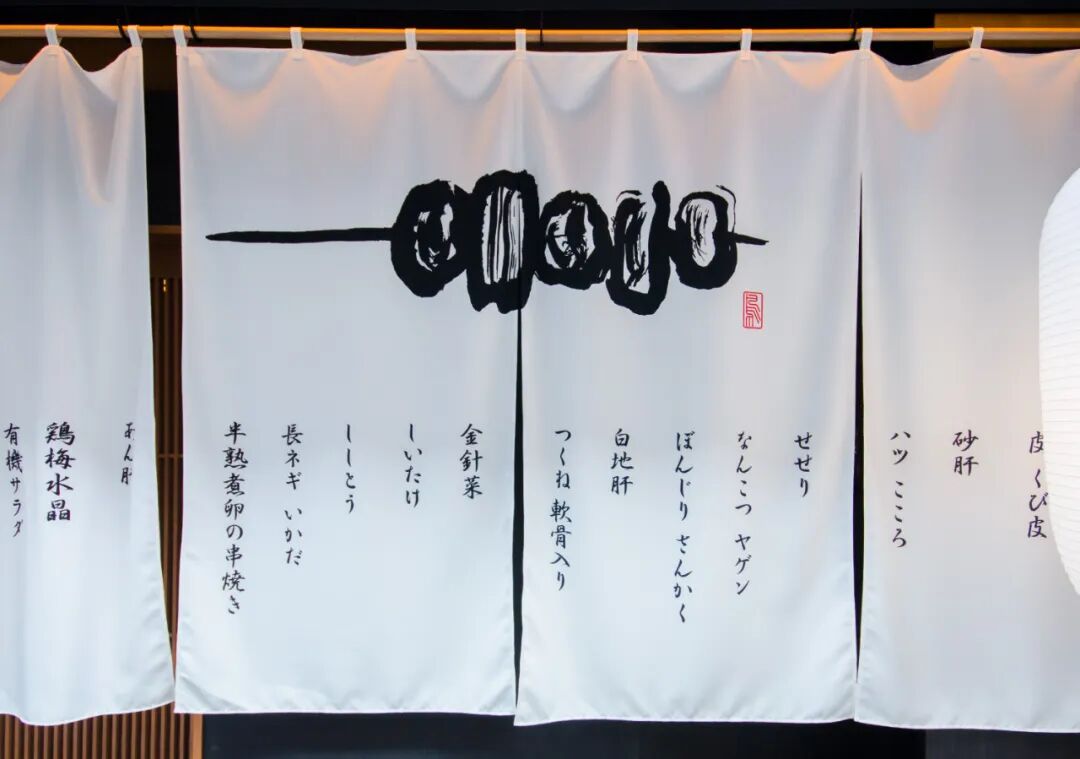 omojo
皮 くび皮
砂肝
ハツ こころ
せせり
なんこつ ヤゲン
ぼんじり さんかく
白地肝
つくね 軟骨入り
金針菜
しいたけ
ししとう
長ネギ いかだ
半熟煮卵の串焼き
あん肝
鶏梅水晶
有機サラダ